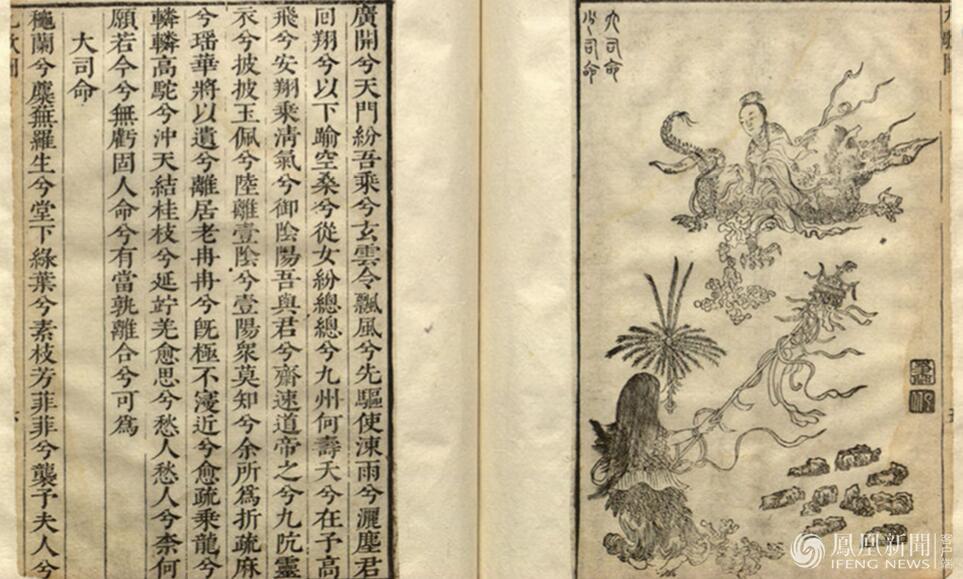 大司命
少司命
廣開兮天門紛吾乘兮玄雲令飄風兮先驅使涷雨兮灑塵君
回翔兮以下踰空桑兮從女紛總總兮九州何壽夭兮在予高
飛兮安翔乘淸氣兮御陰陽吾與君兮齋速道帝之兮九阬靈
衣兮披披玉佩兮陸離壹陰兮壹陽衆莫知兮余所爲折疏麻
兮瑶華將以遺兮離居老冉冉兮旣極不寖近兮愈疏乘龍兮
轔轔高駝兮沖天結桂枝兮延竚羌愈思兮愁人愁人兮柰何
願若今兮無虧固人命兮有當孰離合兮可爲
大司命
穐蘭兮麋蕪羅生兮堂下綠葉兮素枝芳菲菲兮襲予夫人兮
鳳凰新聞
客户端
IFENG NEWS